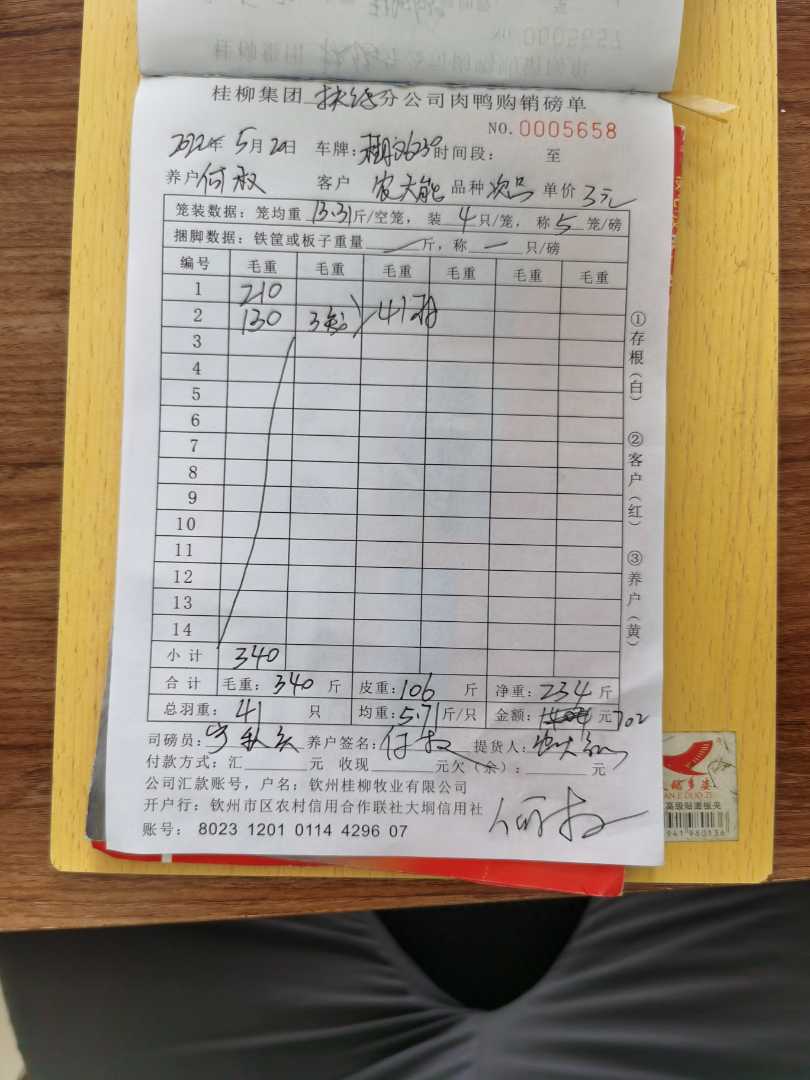 桂柳集团 扶绥分公司肉鸭购销磅单
NO. 0005658
2022年 5月 20日 车牌: 时间段: 至
养户 何权 客户 农天能 品种 次品 单价 3元
笼装数据: 笼均重 13.31斤/空笼, 装 4只/笼, 称 5笼/磅
捆脚数据: 铁筐或板子重量 — 斤, 称 — 只/磅
编号 毛重 毛重 毛重 毛重 毛重 毛重
1 210
2 130 3 41
3
4
5
6
7
8
9
10
11
12
13
14
小计 340
合计 毛重: 340 斤 皮重: 106 斤 净重: 234 斤
总羽重: 41 只 均重: 5.71斤/只 金额: 元 702
司磅员: 养户签名: 何权 提货人:
付款方式: 汇 元 收现 元欠(余): 元
公司汇款账号, 户名: 钦州桂柳牧业有限公司
开户行: 钦州市区农村信用合作联社大垌信用社
账号: 8023 1201 0114 4296 07
何权
①存根(白) ②客户(红) ③养户(黄)
高级贴面板夹
941 980136